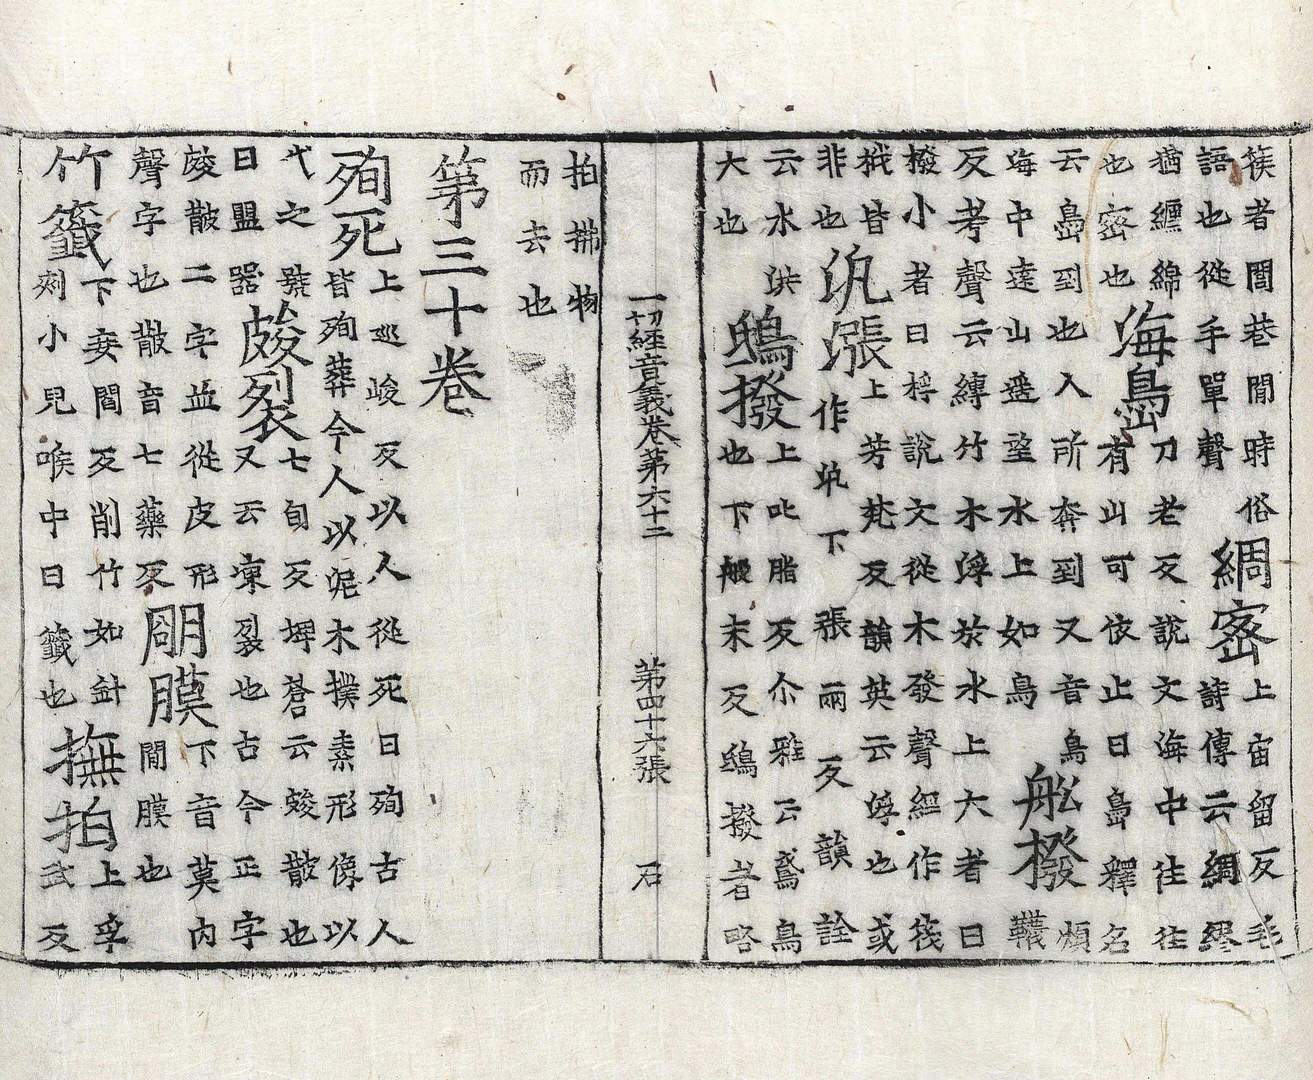 篌者閭巷間時俗
語也從手單聲
綢密
上宙留反毛
詩傳云綢繆
猶纏綿
也密也
海島
刀老反說文海中往往
有山可依止曰島釋名
云島到也人所奔到又音鳥
海中遠山遥望水上如鳥
舩撥
煩
韈
反考聲云縛竹木浮於水上大者曰
撥小者曰桴說文從木發聲經作筏
栰皆
非也
汎漲
上芳梵反韻英云浮也或
作汎下張兩反韻詮
云水洪
大也
鴟撥
上叱脂反尒雅云鳶鳥
也下般末反鴟撥者略
一切經音義卷第六十二　第四十六張　石
拍拂物
而去也
第三十卷
殉死
上巡峻反以人從死曰殉古人
皆殉葬今人以泥木撲素形像以
代之號
曰盟器
皴裂
七旬反埤蒼云皴皵也
又云凍裂也古今正字
皴皵二字並從皮形
聲字也皵音七藥反
膜
下音莫內
間膜也
竹籤
下妾閻反削竹如針
刾小兒喉中曰籤也
撫拍
上孚
武反